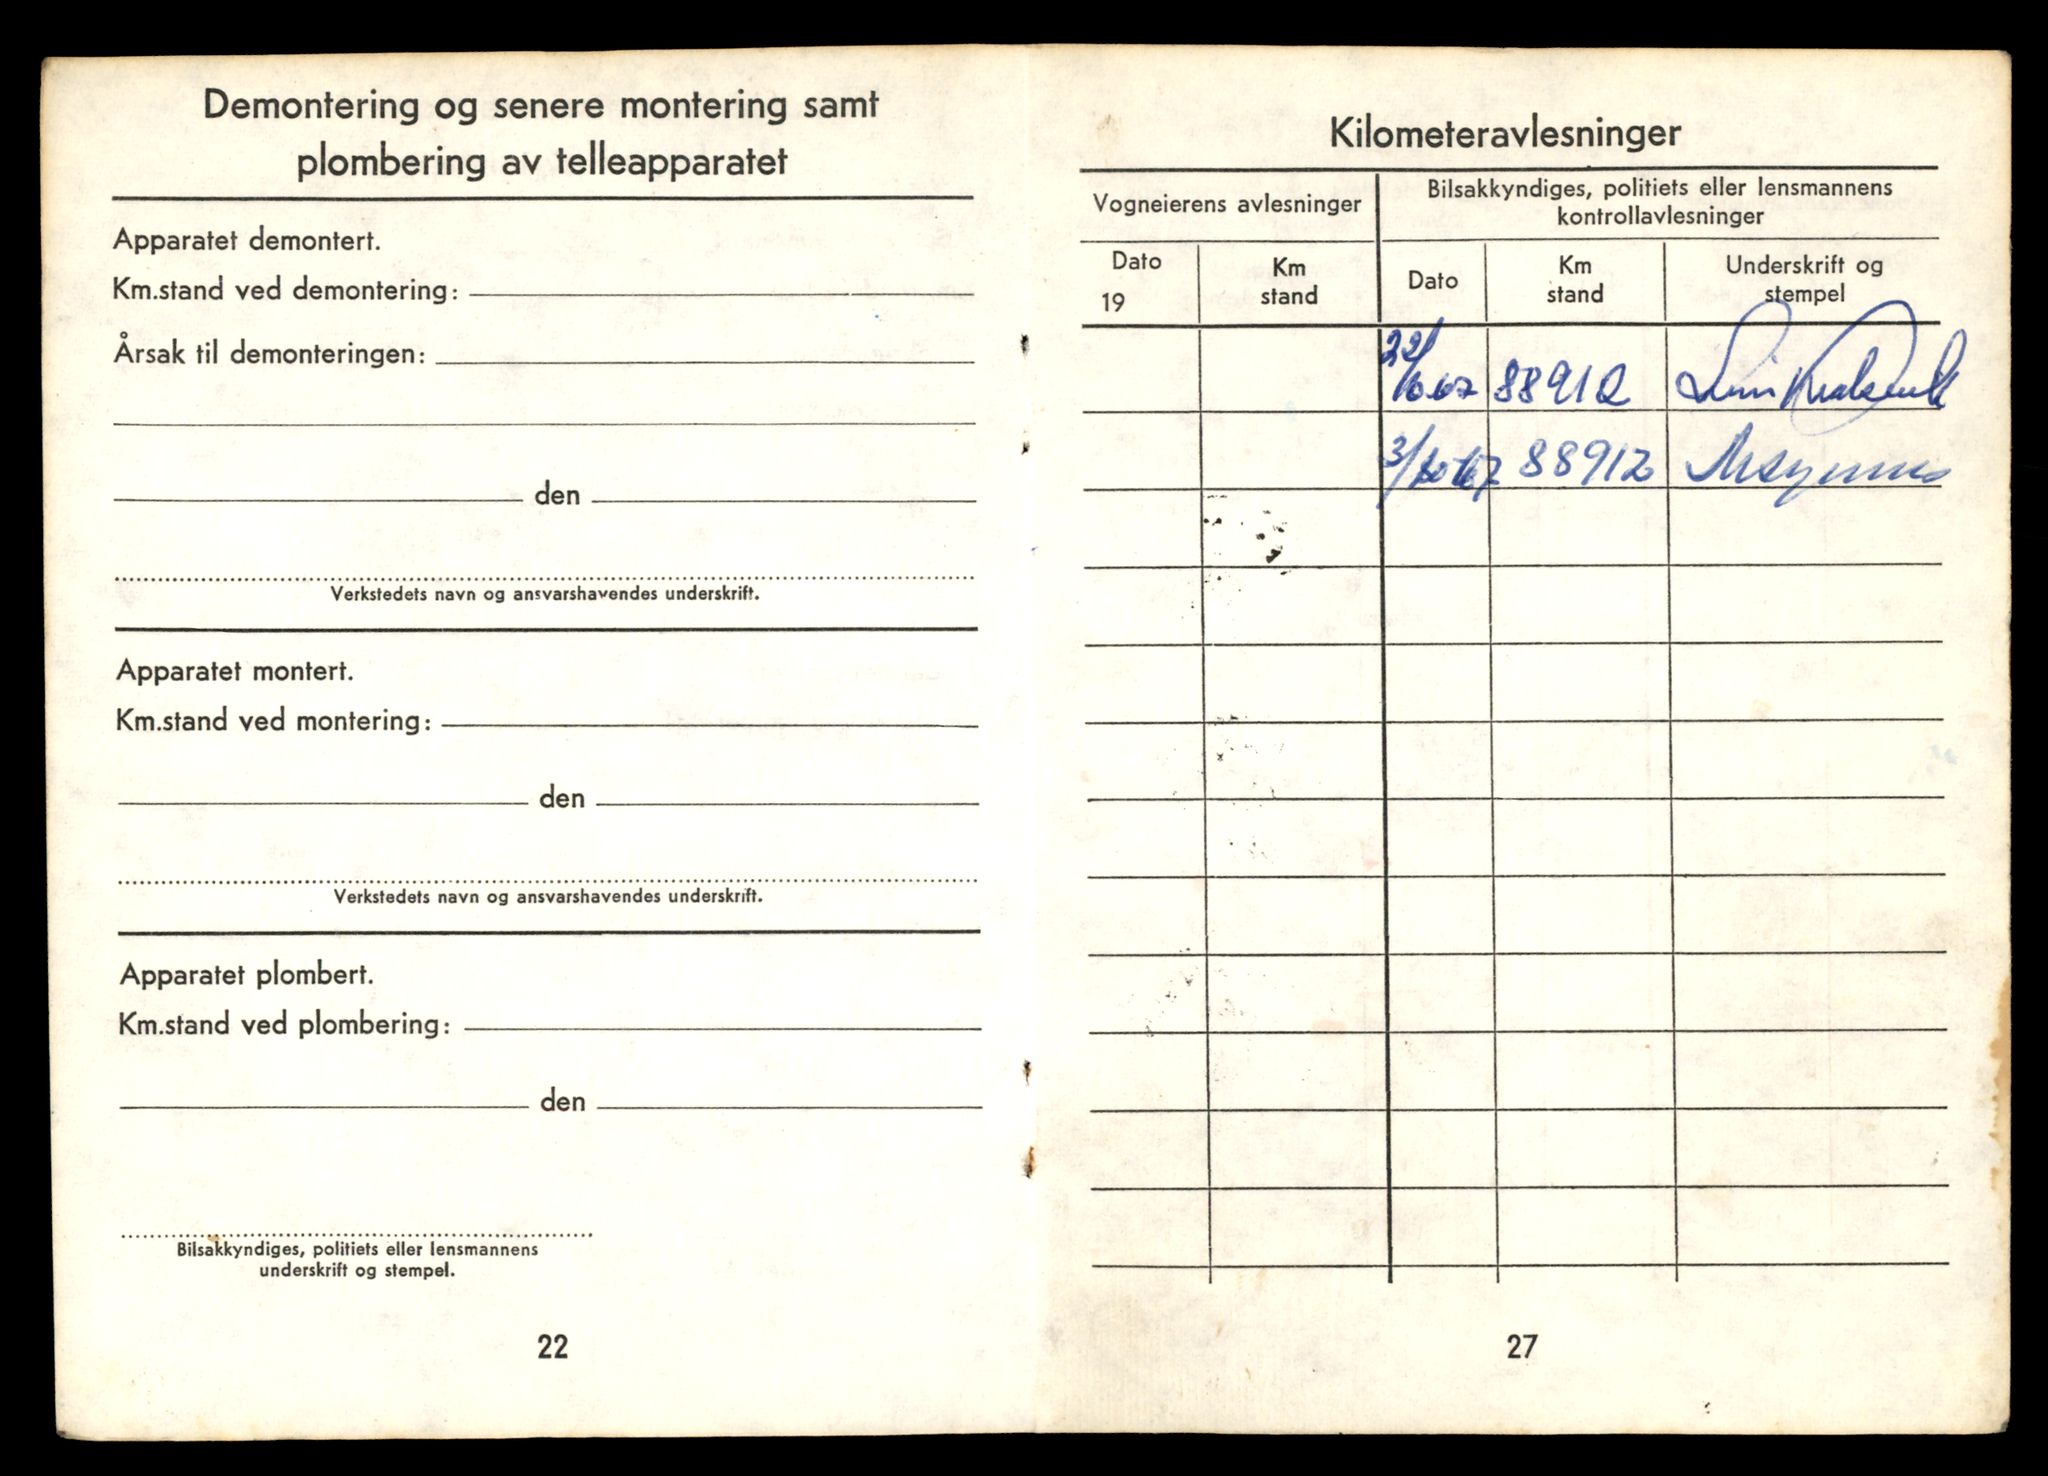 Demontering og senere montering samt
plombering av telleapparatet
Apparatet demontert.
Km.stand ved demontering:
Årsak til demonteringen:
den
Verkstedets navn og ansvarshavendes underskrift.
Apparatet montert.
Km.stand ved montering:
den
Verkstedets navn og ansvarshavendes underskrift.
Apparatet plombert.
Km.stand ved plombering:
den
Bilsakkyndiges, politiets eller lensmannens
underskrift og stempel.
22
Kilometeravlesninger
Vogneierens avlesninger
Bilsakkyndiges, politiets eller lensmannens
kontrollavlesninger
Dato
19
Km
stand
Dato
Km
stand
Underskrift og
stempel
88912
88912
27